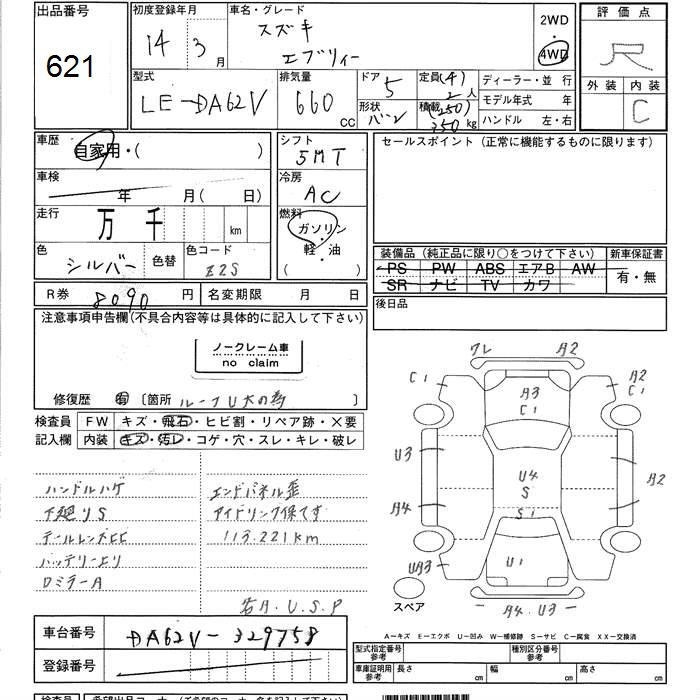 出品番号
621
初度登録年月
14年 3月
車名・グレード
スズキ
エブリィー
2WD
・
4WD
評価点
R
外装 内装
C
型式
LE-DA62V
排気量
660 cc
ドア
5
形状
バン
定員(4)
2人
積載(250)
350kg
ディーラー・並行
モデル年式 年
ハンドル 左・右
車歴
自家用・( )
車検
年 月( 日)
走行
万 千 km
色
シルバー 色替
色コード
Z2S
シフト
5MT
冷房
AC
燃料
ガソリン
軽・油
( )
セールスポイント(正常に機能するものに限ります)
装備品(純正品に限り○をつけて下さい)
PS PW ABS エアB AW
SR ナビ TV カワ
新車保証書
有・無
R券 8090 円
名変期限 月 日
後日品
注意事項申告欄(不具合内容等は具体的に記入して下さい)
ノークレーム車
no claim
修復歴 有 〔箇所 ルーフU大の為 〕
検査員 FW キズ・飛石・ヒビ割・リペア跡・×要
記入欄 内装 キズ・汚レ・コゲ・穴・スレ・キレ・破レ
ハンドルハゲ
下廻りS
テールレンズCC
バッテリー上リ
ロミラーA
エンドパネル歪
アイドリング保てず
113.221km
右A.U.S.P
ワレ A2
C1
A3
C1
A2
C1
U3
U4
S
A2
A4
S1
UA3
U1
A4.U3
スペア
A―キズ E―エクボ U―凹み W―補修跡 S―サビ C―腐食 XX―交換済
車台番号 DA62V-329758
登録番号
型式指定番号
参考
種別区分番号
参考
車庫証明用
参考
長さ cm 幅 cm 高さ cm